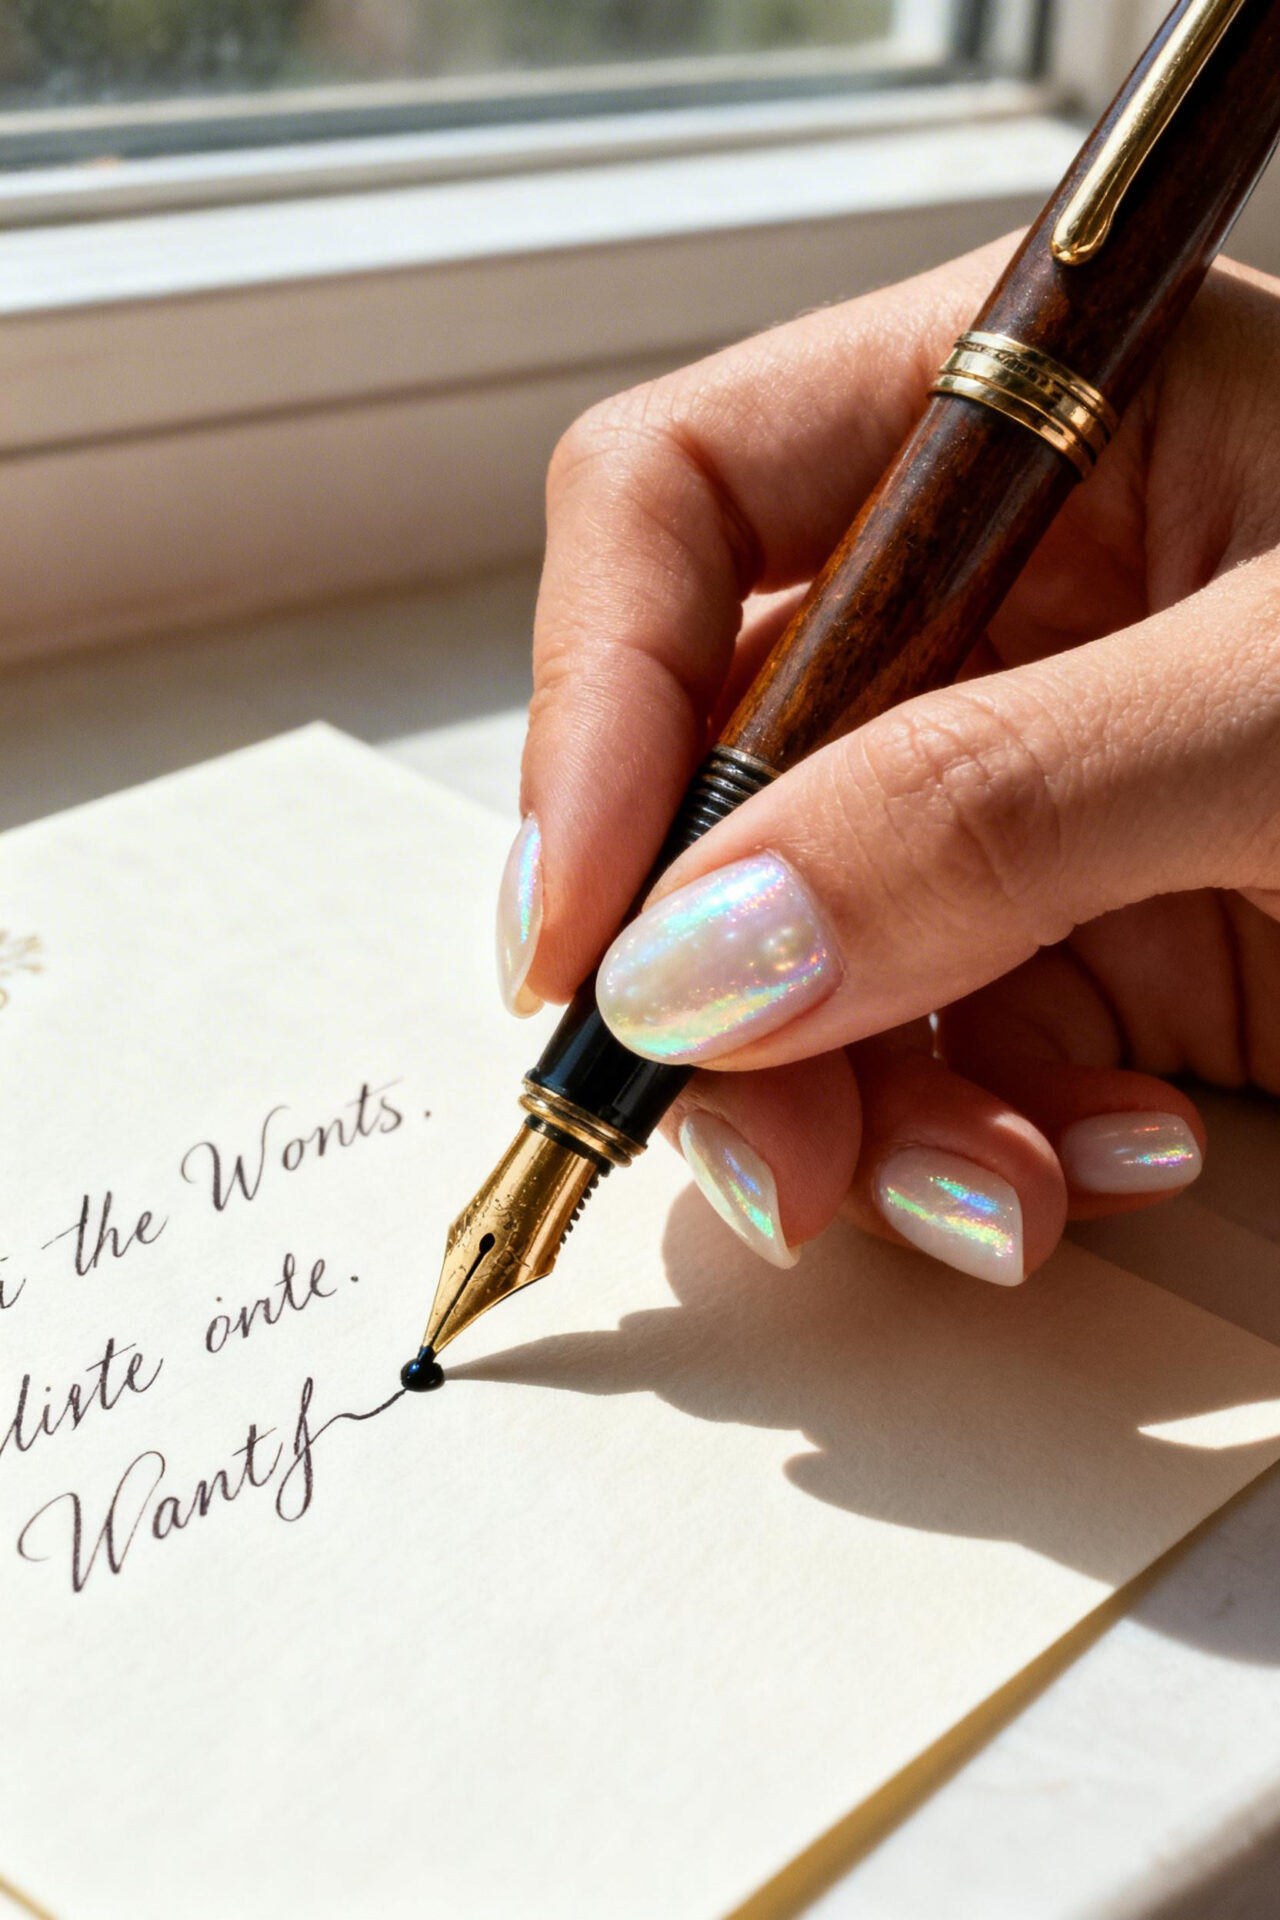 the Wonts.
liste onte.
Wantf